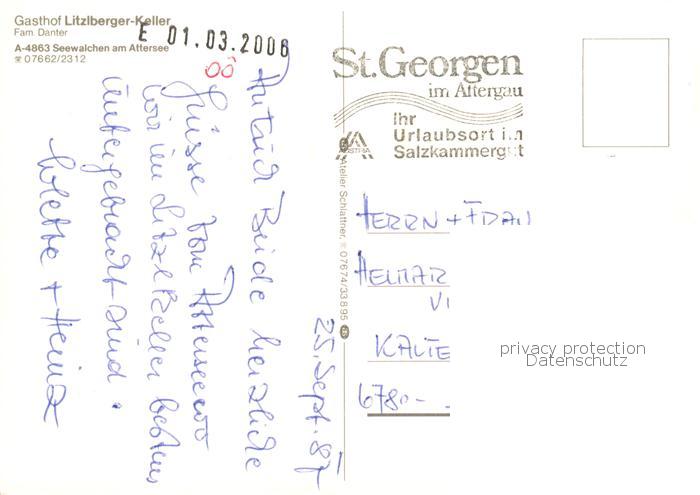 Gasthof Litzlberger-Keller
Fam. Danter
A-4863 Seewalchen am Attersee
☏ 07662/2312
E 01.03.2006
OÖ
25. Sept. 87
Beide herzliche
Grüsse vom Attersee wo
wir im Litzlkeller bestens
untergebracht sind.
+ Heinz
St.Georgen
im Attergau
Ihr
Urlaubsort im
Salzkammergut
AUSTRIA
Atelier Schlattner, ☏ 07674/33895
HERRN + FRAU
HELMAR
KALTE
6780-
privacy protection
Datenschutz